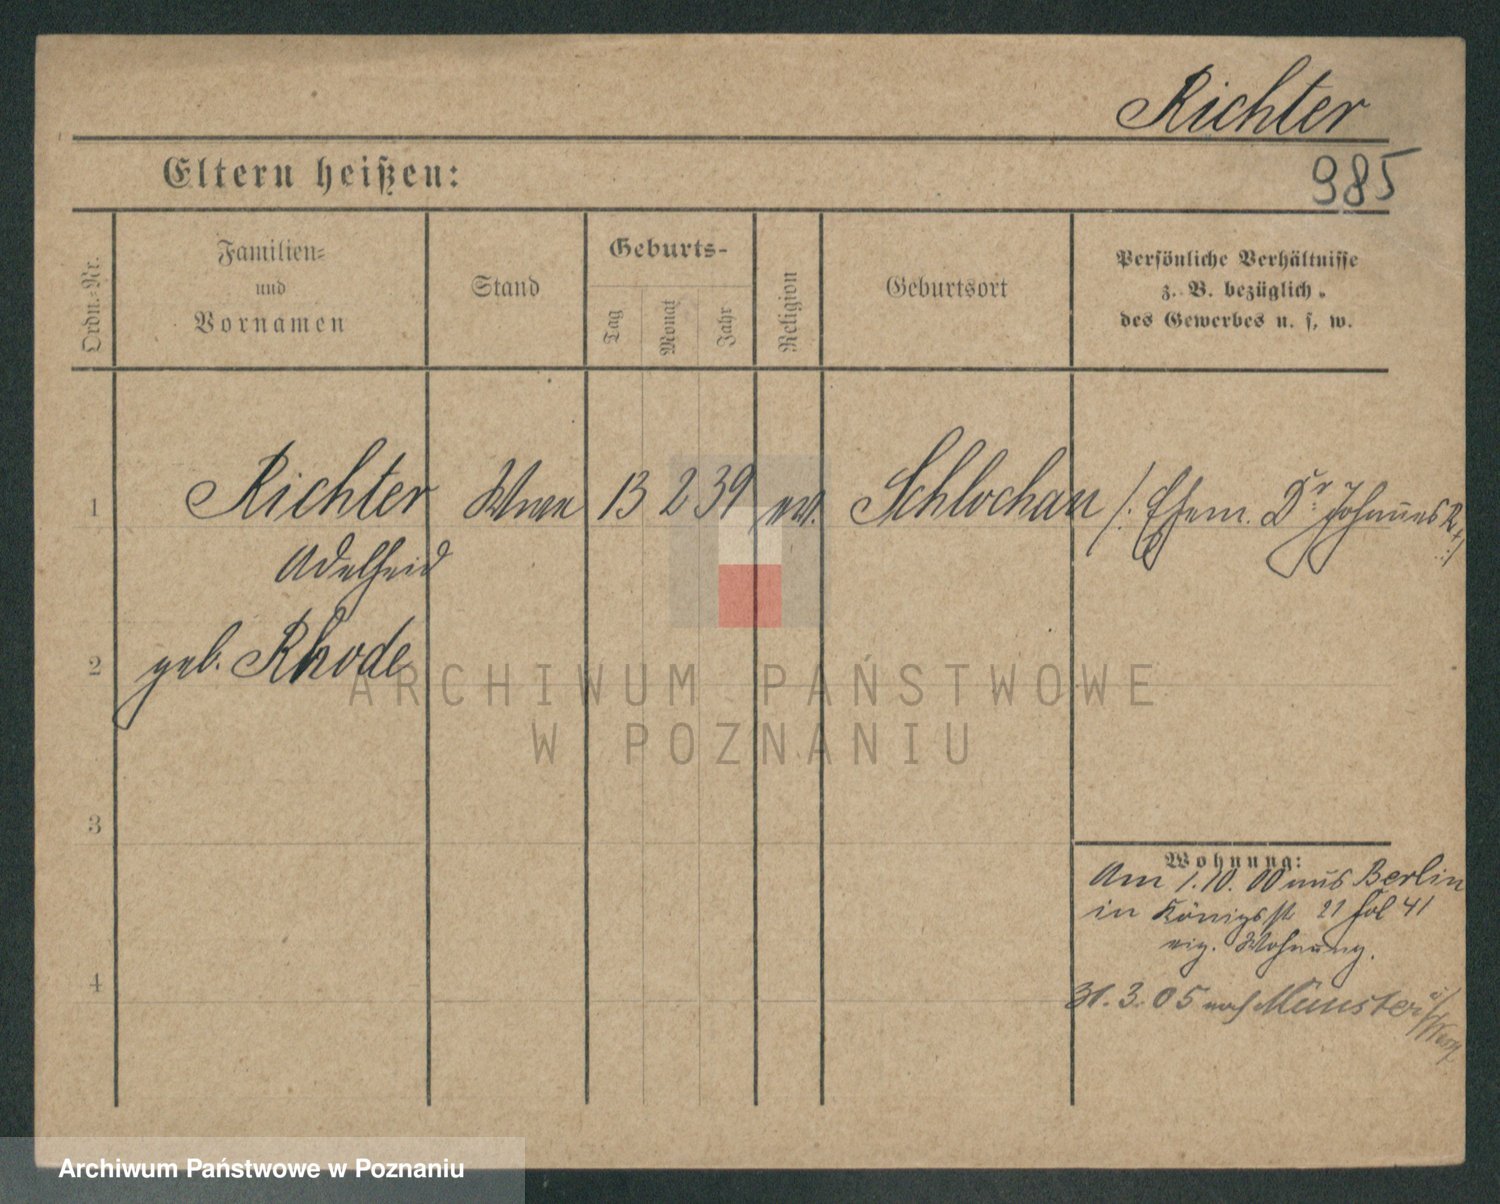 Richter
Eltern heißen:
985
Ordn.-Nr.
Familien-
und
Vornamen
Stand
Geburts-
Tag
Monat
Jahr
Religion
Geburtsort
Persönliche Verhältnisse
z. B. bezüglich
des Gewerbes u. s. w.
1
Richter
Wwe
13
2
39
ev.
Schlochau
/: Ehem. Dr Johannes R
Adelheid
2
geb. Rhode
ARCHIWUM PAŃSTWOWE
W POZNANIU
3
Wohnung:
Am 1.10.00 aus Berlin
in Königsst 21 fol 41
eig. Wohnung.
4
31.3.05 nach Münster
Archiwum Państwowe w Poznaniu